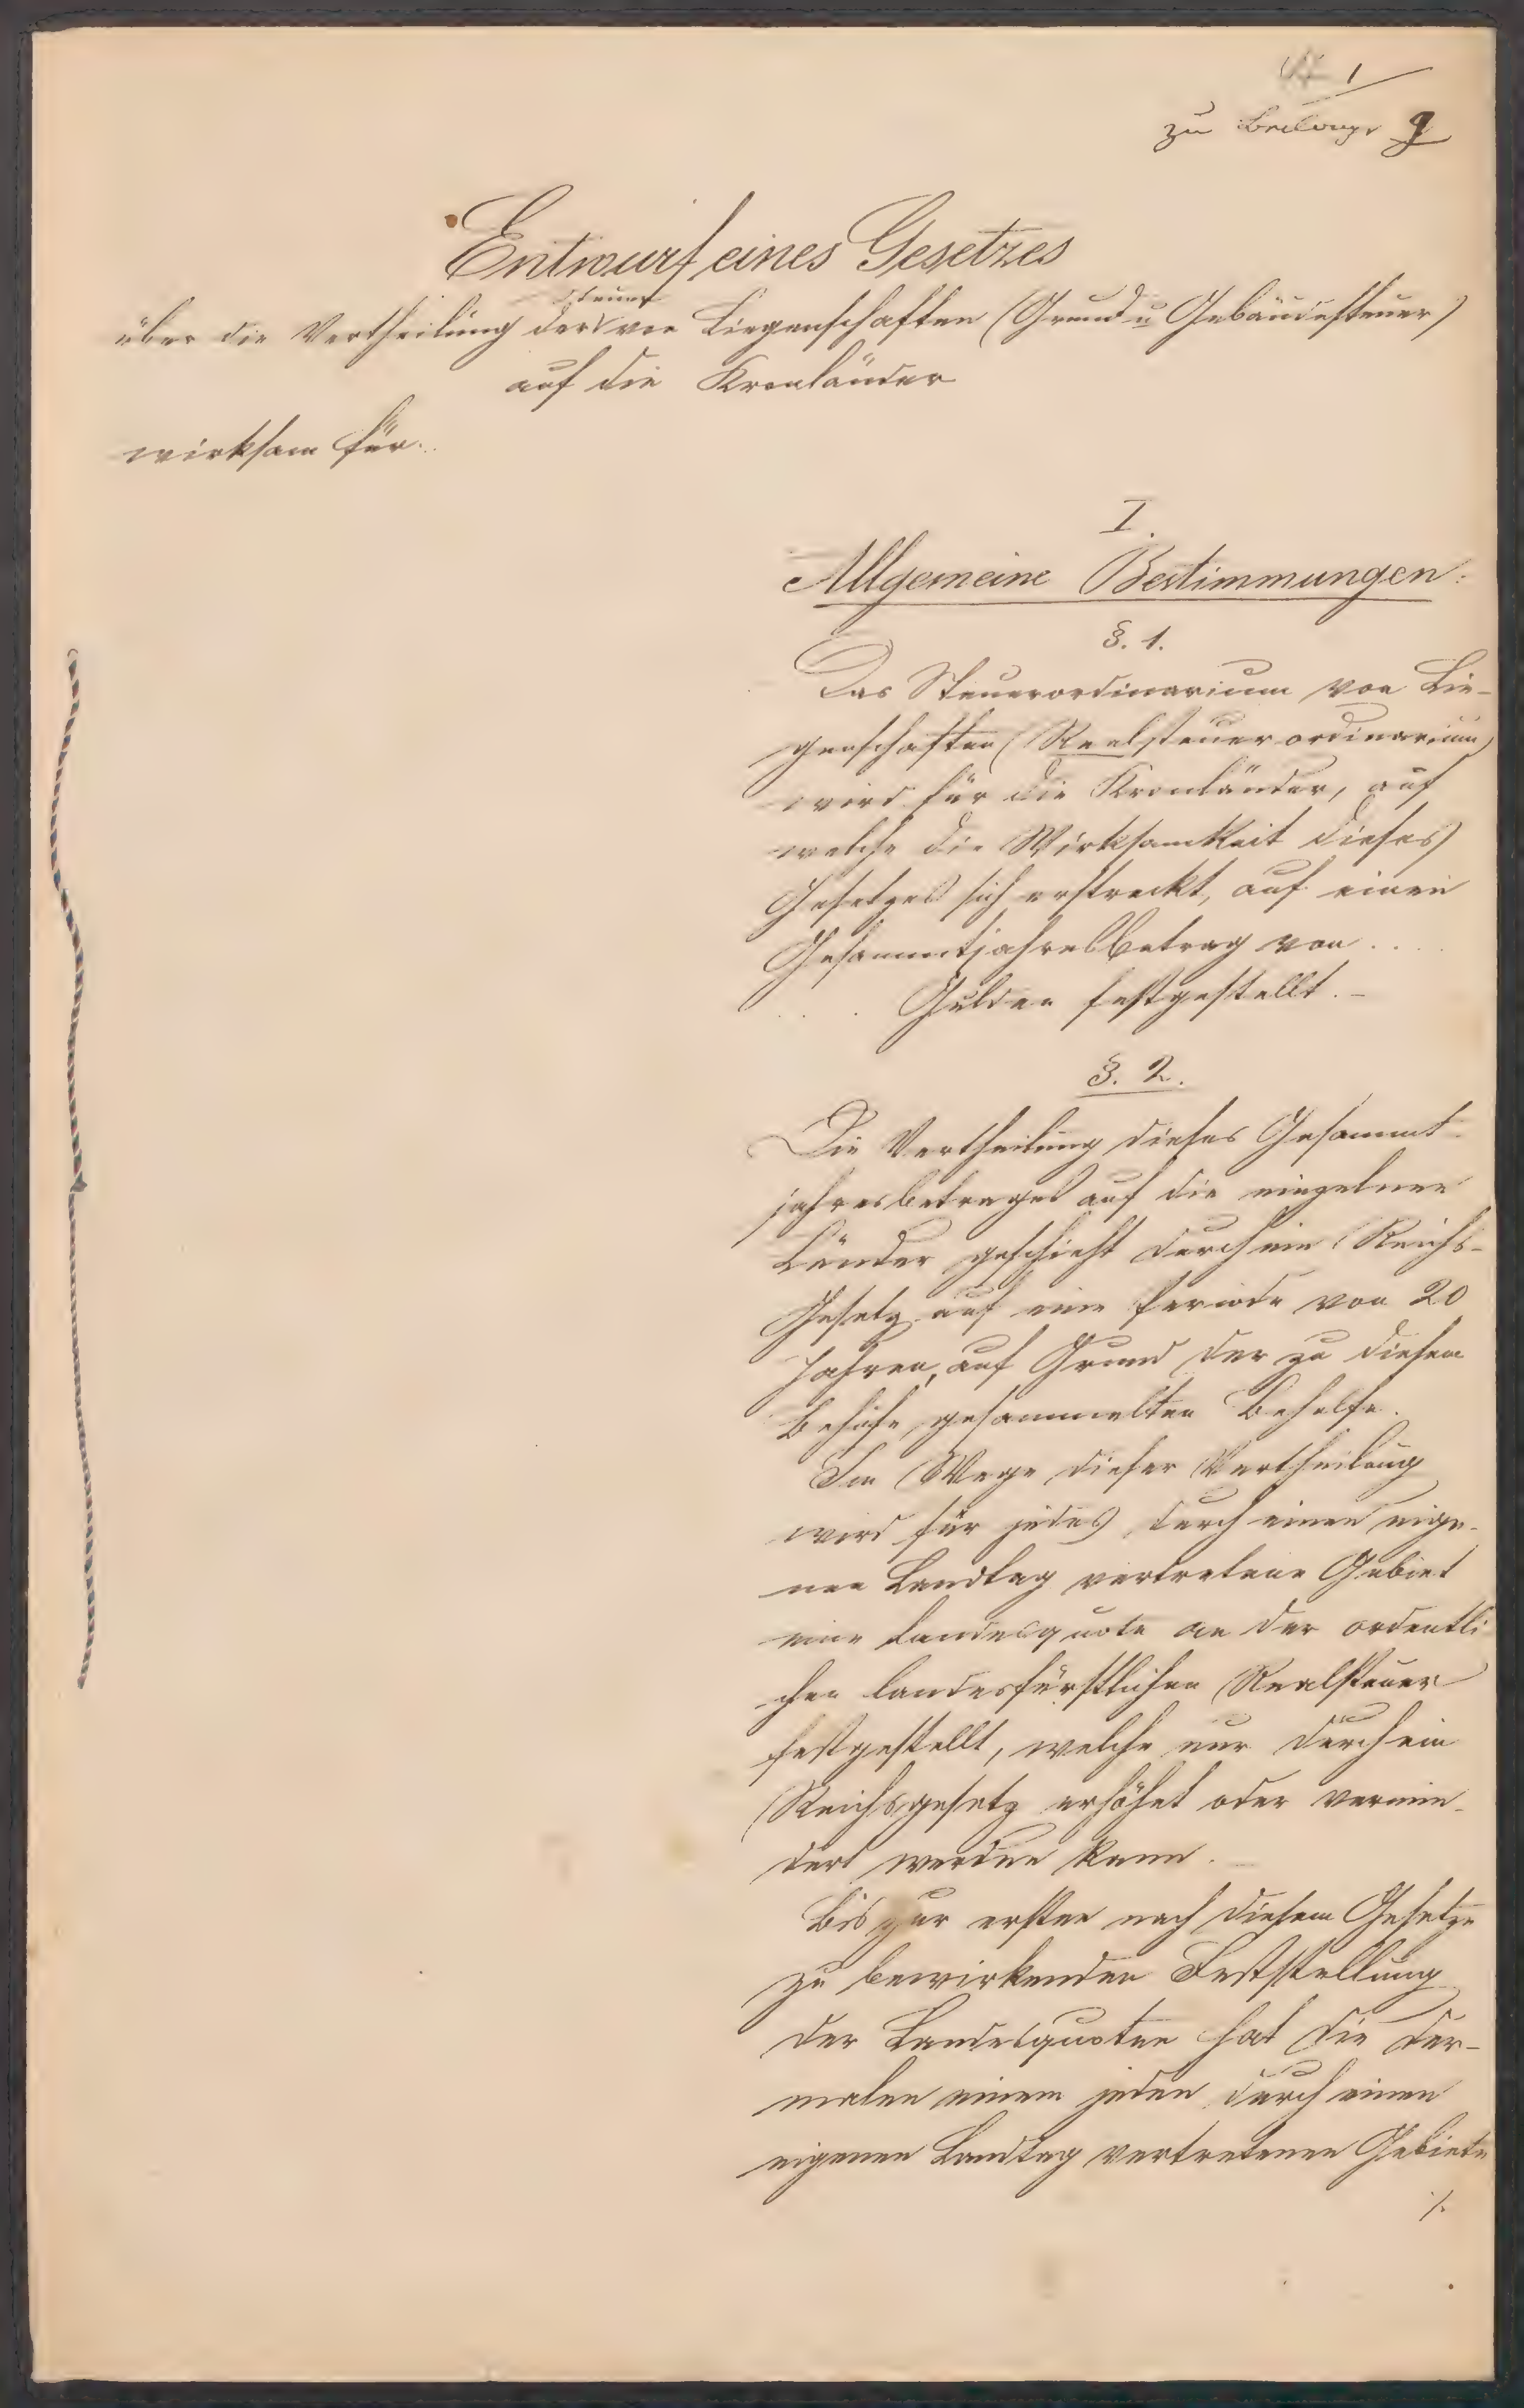 1
zu Beilage 9
Entwurf eines Gesetzes
Steuer
über die Vertheilung der von Liegenschaften (Grund u Gebäudesteuer)
auf die Kronländer
wirksam für..
I.
Allgemeine Bestimmungen:
§. 1.
Das Steuerordinarium von Lie-
genschaften (Realsteuerordinarium)
wird für die Kronländer, auf
welche die Wirksamkeit dieses
Gesetzes sich erstreckt, auf einen
Gesammtjahresbetrag von ....
... Gulden festgestellt. -
§. 2.
Die Vertheilung dieses Gesammt-
jahresbetrages auf die einzelnen
Länder geschieht durch ein Reichs-
Gesetz auf eine Periode von 20
Jahren, auf Grund der zu diesem
Behufe gesammelten Behelfe.
Im Wege dieser Vertheilung
wird für jedes durch einen eige-
nen Landtag vertretene Gebiet
eine Landesquote an der ordentli
chen landesfürstlichen Realsteuer
festgestellt, welche nur durch ein
Reichsgesetz erhöhet oder vermin-
dert werden kann. -
Bis zur ersten nach diesem Gesetze
zu bewirkenden Feststellung
der Landesquoten hat die der-
malen einem jeden durch einen
eigenen Landtag vertretenen Gebiete
./.